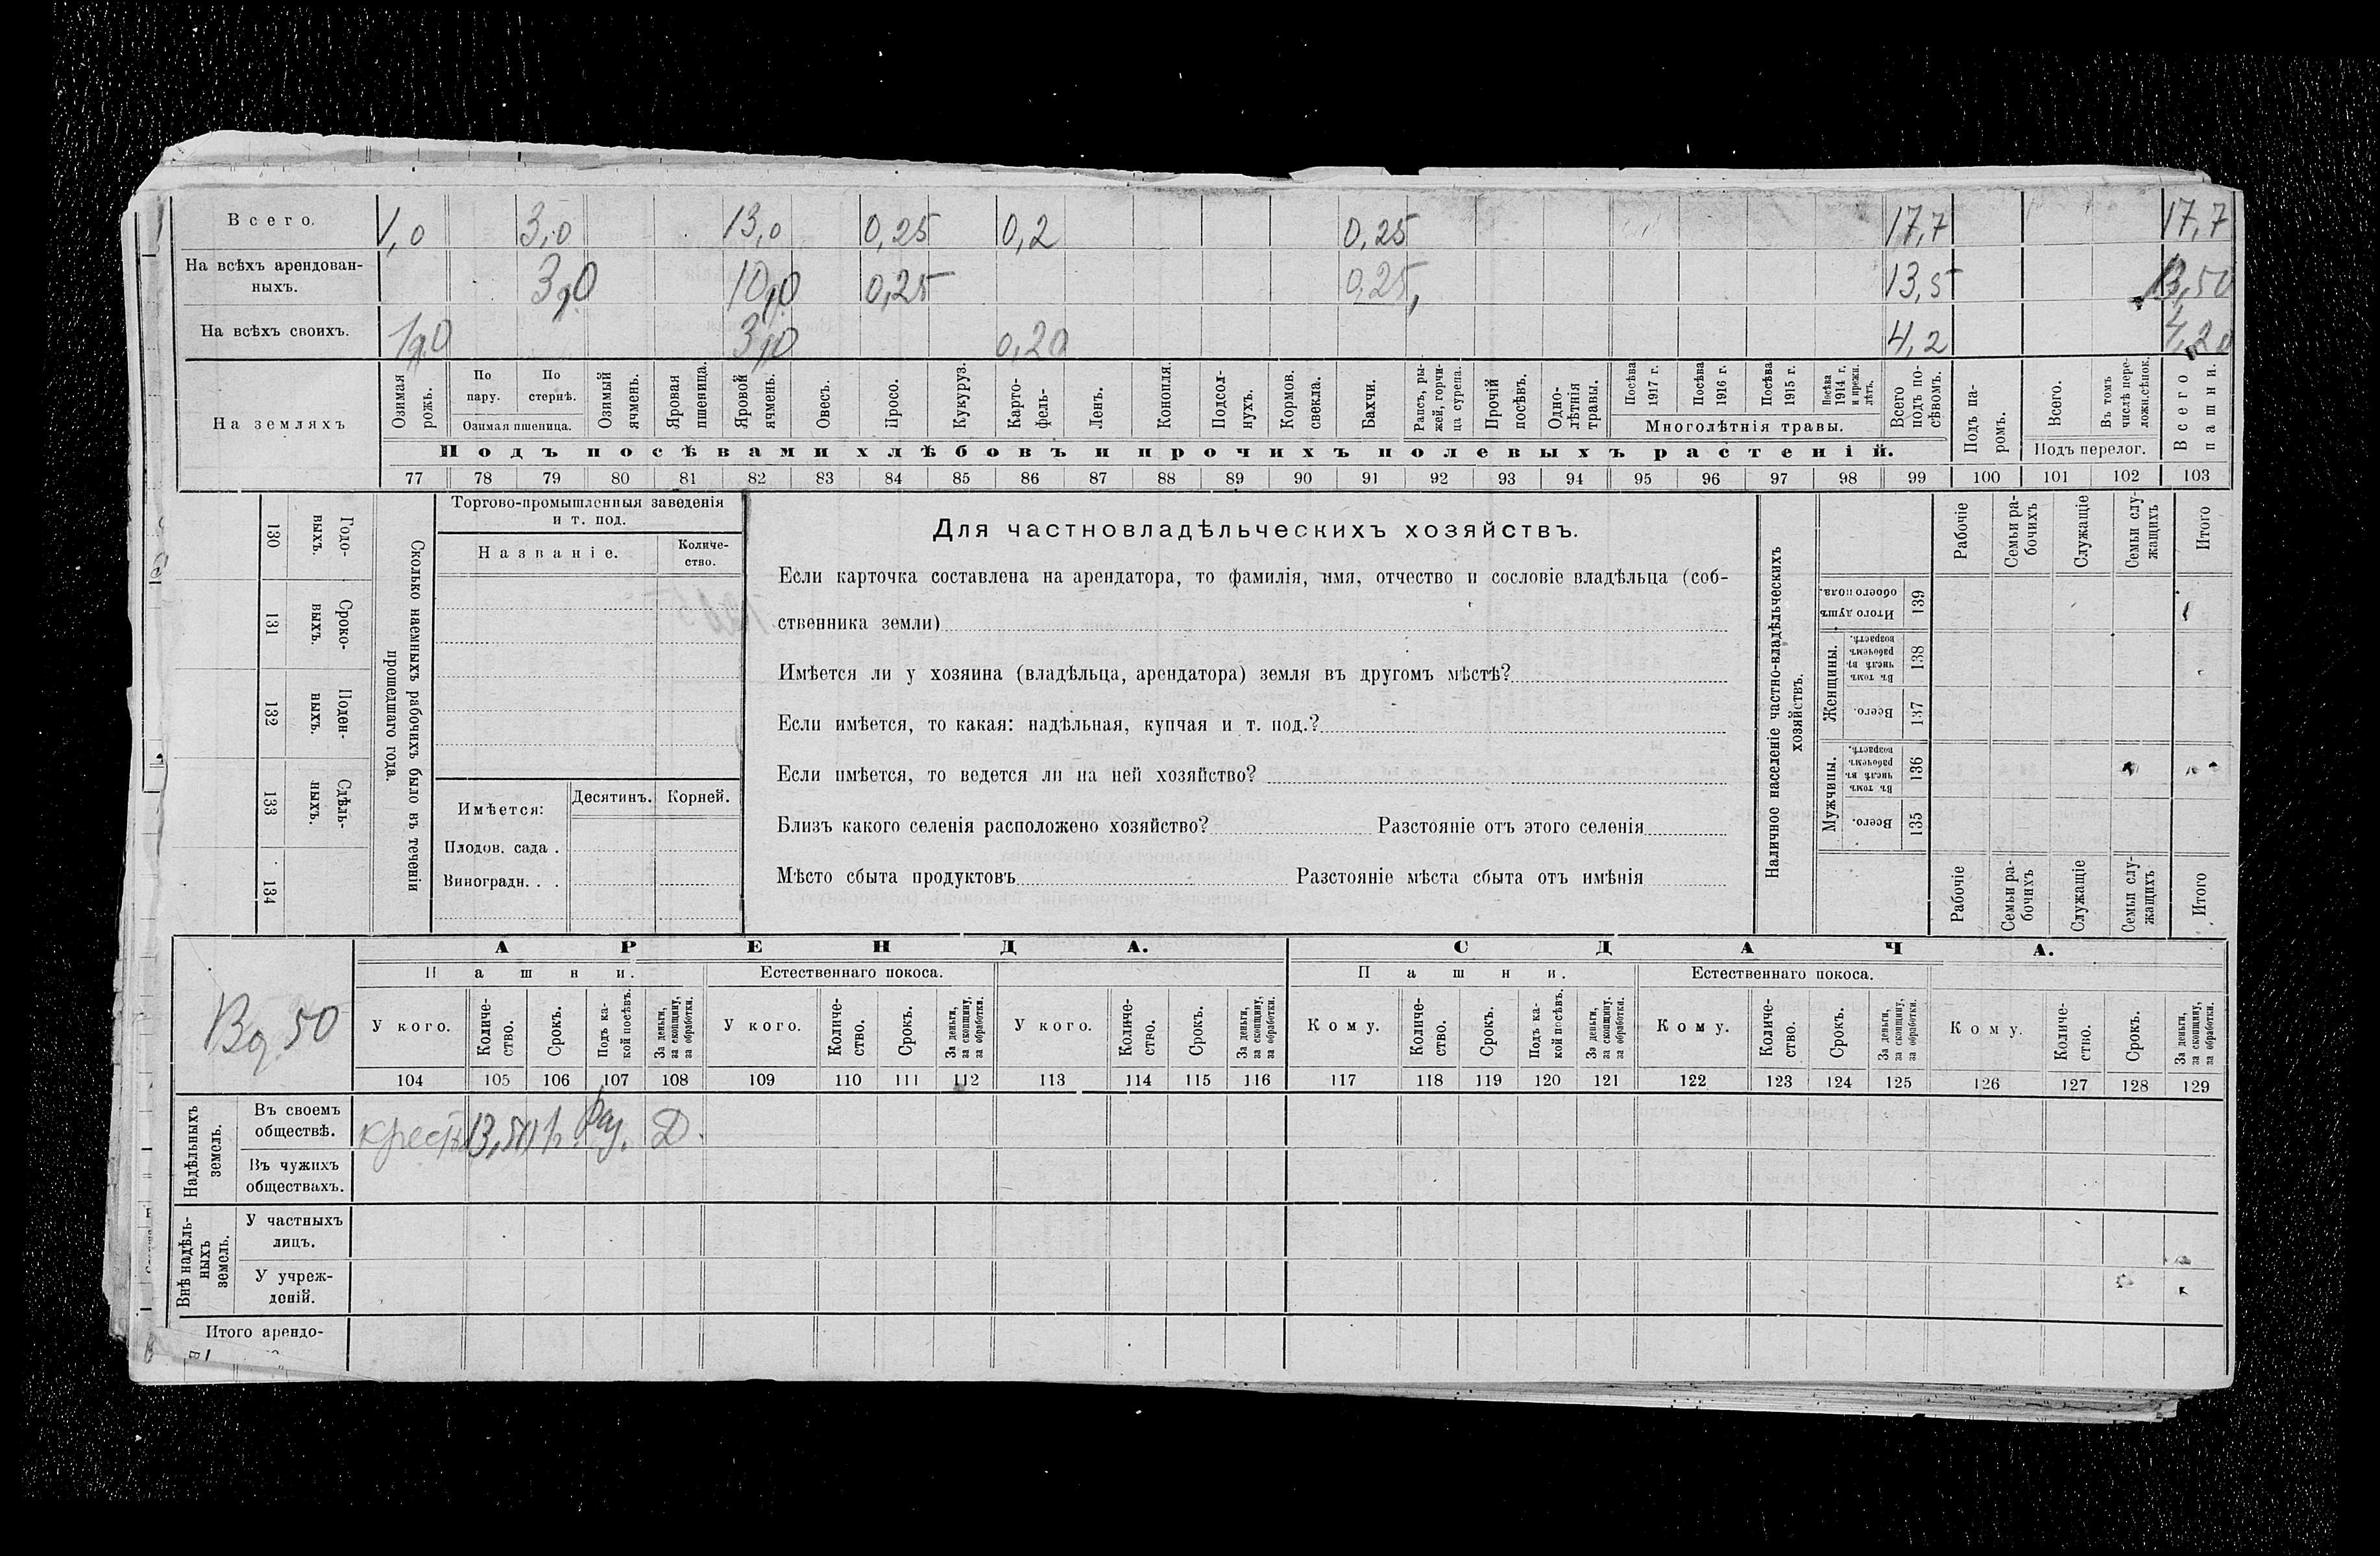 Всего. 1,0 3,0 13,0 0,25 0,2 0,25 17,7 17,7
На всѣхъ арендован-
ныхъ. 3д0 10д0 0,25 0,25, 13,5 13,50
На всѣхъ своихъ. 1д0 3д0 0,20 4,2 4,20
На земляхъ
Озимая рожь.
По пару.
По стернѣ.
Озимая пшеница.
Озимый ячмень.
Яровая пшеница.
Яровой ячмень.
Овесъ.
Просо.
Кукуруз.
Карто-
фель-
Ленъ.
Конопля.
Подсол-
нухъ.
Кормов. свекла.
Бахчи.
Рапсъ, ры-
жей, горчи-
ца сурепа.
Прочій посѣвъ.
Одно-
лѣтнія травы.
Посѣва 1917 г.
Посѣва 1916 г.
Посѣва 1915 г.
Посѣва 1914 г. и прежн. лѣтъ.
Многолѣтнія травы.
Всего подъ по-
сѣвомъ.
Подъ па-
ромъ.
Всего.
Въ томъ числѣ пере-
ложн.сѣнок.
Подъ перелог.
Всего пашни.
Подъ посѣвами хлѣбовъ и прочихъ полевыхъ растеній.
77 78 79 80 81 82 83 84 85 86 87 88 89 90 91 92 93 94 95 96 97 98 99 100 101 102 103
Годо-
выхъ.
130
Сроко-
выхъ.
131
Поден-
ныхъ.
132
Сдѣль-
ныхъ.
133
134
Сколько наемныхъ рабочихъ было въ теченіи
прошедшаго года.
Торгово-промышленныя заведенія
и т. под.
Названіе.
Количе-
ство.
Имѣется: Десятинъ. Корней.
Плодов. сада .
Виноградн. . .
Для частновладѣльческихъ хозяйствъ.
Если карточка составлена на арендатора, то фамилія, имя, отчество и сословіе владѣльца (соб-
ственника земли)
Имѣется ли у хозяина (владѣльца, арендатора) земля въ другомъ мѣстѣ?
Если имѣется, то какая: надѣльная, купчая и т. под.?
Если имѣется, то ведется ли на ней хозяйство?
Близъ какого селенія расположено хозяйство? Разстояніе отъ этого селенія
Мѣсто сбыта продуктовъ Разстояніе мѣста сбыта отъ имѣнія
Наличное населеніе частно-владѣльческихъ
хозяйствъ.
Рабочіе
Семьи ра-
бочихъ
Служащіе
Семьи слу-
жащихъ
Итого
Итого душъ
обоего пола.
139
Женщины.
Въ томъ числѣ въ рабочемъ возрастѣ.
138
Всего.
137
Мужчины.
Въ томъ числѣ въ рабочемъ возрастѣ.
136
Всего.
135
Рабочіе
Семьи ра-
бочихъ
Служащіе
Семьи слу-
жащихъ
Итого
АРЕНДА. СДАЧА.
Пашни. Естественнаго покоса. Пашни. Естественнаго покоса.
У кого.
Количе-
ство.
Срокъ.
Подъ ка-
кой посѣвъ.
За деньги,
за скопщину,
за обработки.
У кого.
Количе-
ство.
Срокъ.
За деньги,
за скопщину,
за обработки.
У кого.
Количе-
ство.
Срокъ.
За деньги,
за скопщину,
за обработки.
Кому.
Количе-
ство.
Срокъ.
Подъ ка-
кой посѣвъ.
За деньги,
за скопщину.
за обработки.
Кому.
Количе-
ство.
Срокъ.
За деньги,
за скопщину,
за обработки.
Кому.
Количе-
ство.
Срокъ.
За деньги,
за скопщину,
за обработки.
104 105 106 107 108 109 110 111 112 113 114 115 116 117 118 119 120 121 122 123 124 125 126 127 128 129
Надѣльныхъ
земель.
Въ своемъ
обществѣ. 13,50 Д.
Въ чужихъ
обществахъ.
Внѣ надѣль-
ныхъ
земель.
У частныхъ
лицъ.
У учреж-
деній.
Итого арендо-